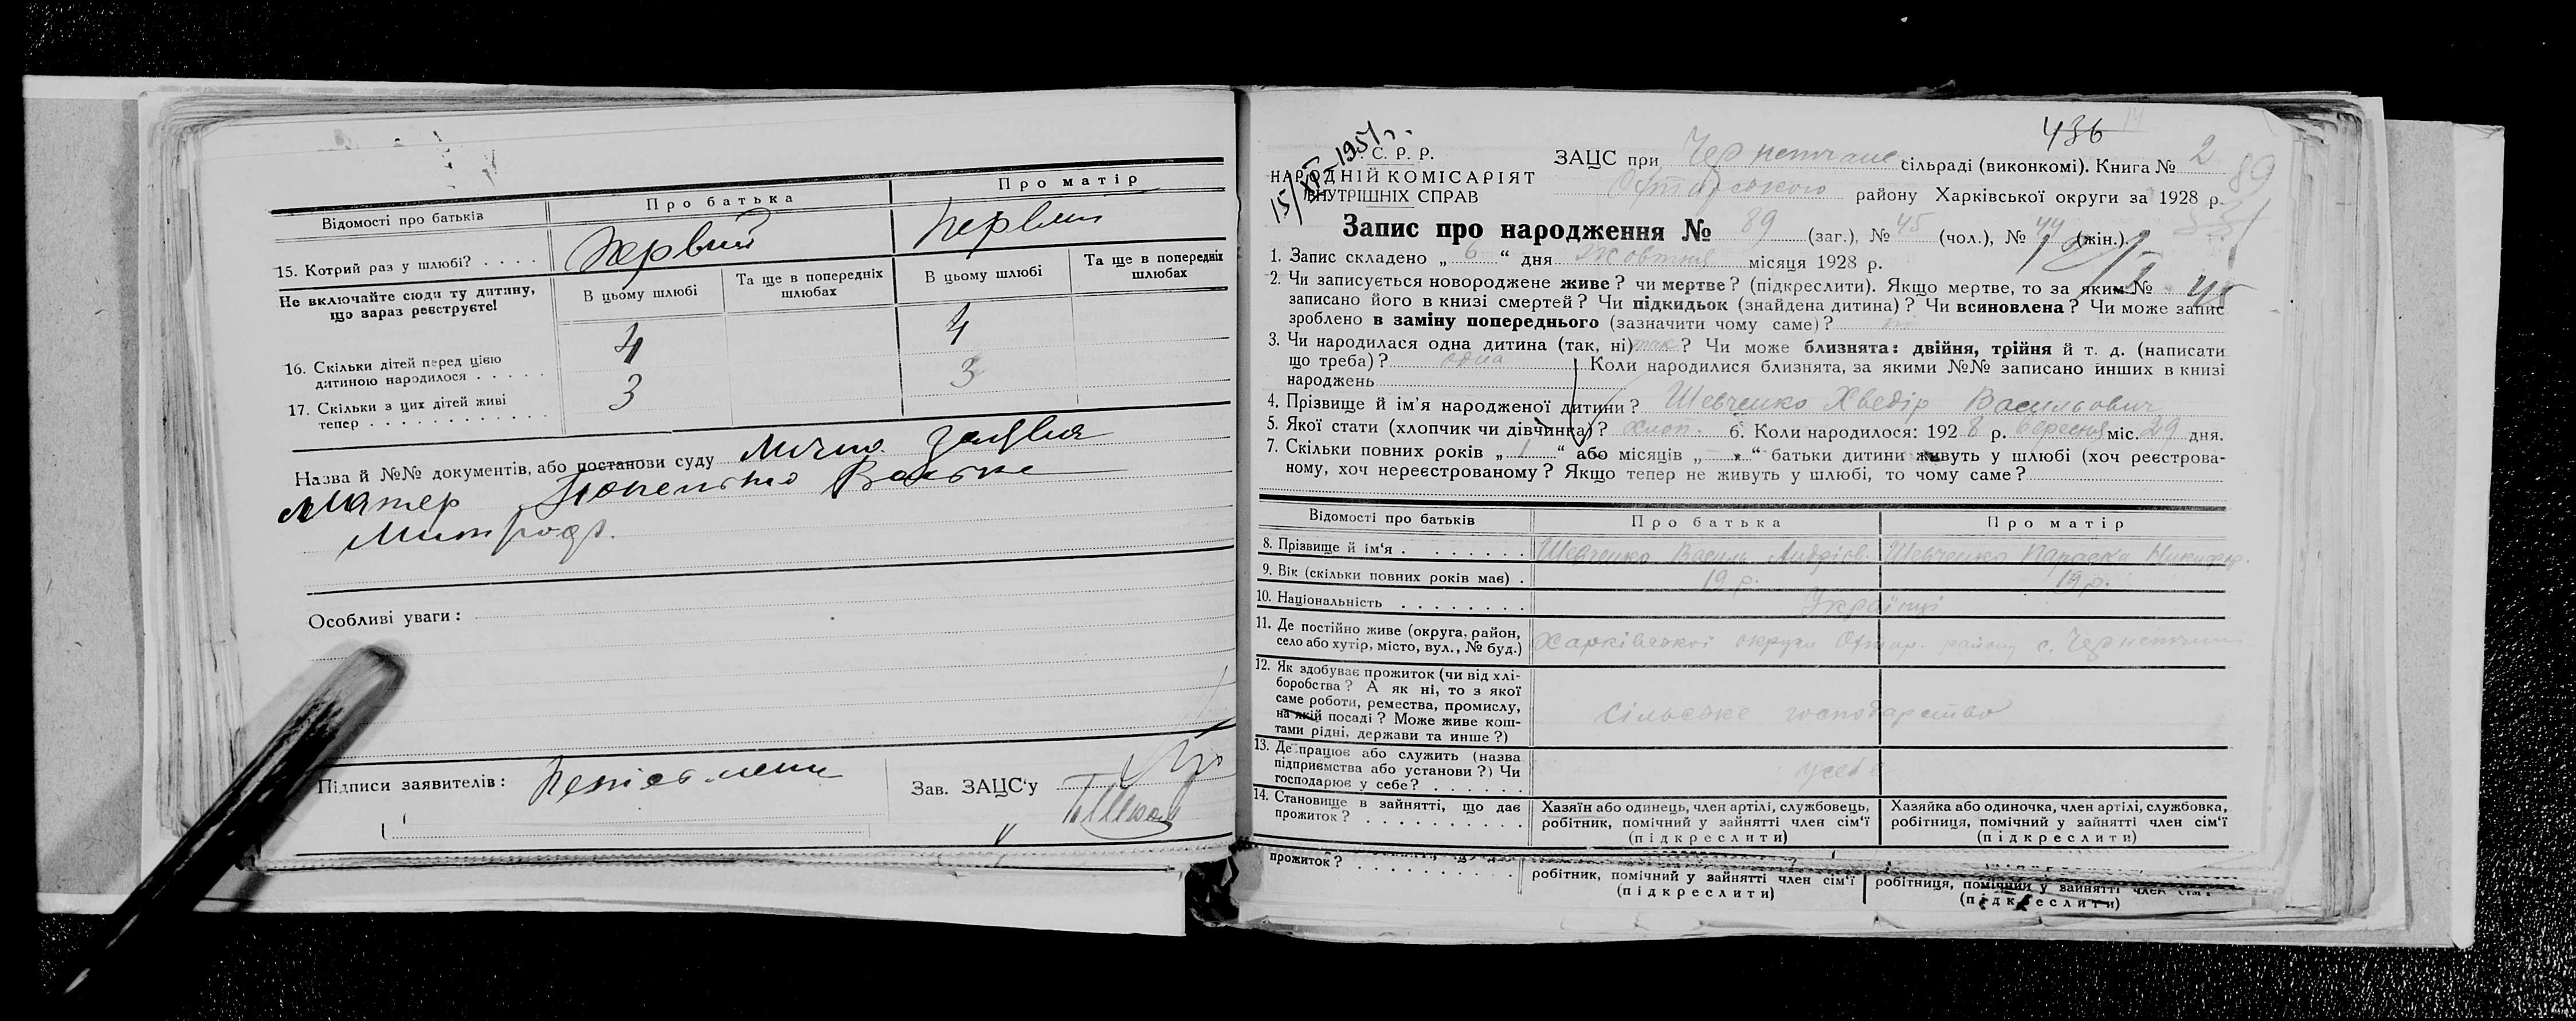 Відомості про батьків
Про батька
Про матір
15. Котрий раз у шлюбі? . . . .
первый
первый
Не включайте сюди ту дитину, що зараз реєструєте!
В цьому шлюбі
Та ще в попередніх шлюбах
В цьому шлюбі
Та ще в попередніх шлюбах
16. Скільки дітей перед цією
дитиною народилося . . . . .
4
4
17. Скільки з цих дітей живі
тепер . . . . . . . . . . . .
3
3
Назва й №№ документів, або постанови суду
Матер
Митроф.
Особливі уваги :
Підписи заявителів :
Зав. ЗАЦС'у
436
15/XI-1951 г.
С. Р. Р.
НАРОДНІЙ КОМІСАРІЯТ
ВНУТРІШНІХ СПРАВ
ЗАЦС при сільраді (виконкомі). Книга № 2
89
району Харківської округи за 1928 р.
Запис про народження № 89 (заг.), № 45 (чол.), № 44 (жін.).
1. Запис складено „ 6 “ дня Жовтня місяця 1928 р.
45
2. Чи записується новороджене живе? чи мертве? (підкреслити). Якщо мертве, то за яким №
записано його в книзі смертей? Чи підкидьок (знайдена дитина)? Чи всиновлена? Чи може запис
зроблено в заміну попереднього (зазначити чому саме)?
3. Чи народилася одна дитина (так, ні) так? Чи може близнята: двійня, трійня й т. д. (написати
що треба)? одна Коли народилися близнята, за якими №№ записано инших в книзі
народжень
4. Прізвище й ім'я народженої дитини? Шевченко Хведір Васильович
5. Якої стати (хлопчик чи дівчинка)? хлоп. 6. Коли народилося: 1928 р. вересня міс. 29 дня.
7. Скільки повних років „ 1 “ або місяців „ “ батьки дитини живуть у шлюбі (хоч реєстрова-
ному, хоч нереєстрованому? Якщо тепер не живуть у шлюбі, то чому саме?
Відомості про батьків
Про батька
Про матір
8. Прізвище й ім'я . . . . . . . .
Шевченко Василь Андріов.
Шевченко Параска Никифор.
9. Вік (скільки повних років має) .
19 р.
19 р.
10. Національність . . . . . . . .
Українці
11. Де постійно живе (округа, район,
село або хутір, місто, вул., № буд.)
Харківської округи Охтир. району с.
12. Як здобуває прожиток (чи від хлі-
боробства? А як ні, то з якої
саме роботи, ремества, промислу,
на якій посаді? Може живе кош-
тами рідні, держави та инше?)
сільське господарство
13. Де працює або служить (назва
підприємства або установи?) Чи
господарює у себе? . . . . . .
у себе
14. Становище в зайнятті, що дає
прожиток? . . . . . . . . . .
Хазяїн або одинець, член артілі, службовець,
робітник, помічний у зайнятті член сім'ї
(підкреслити)
Хазяйка або одиночка, член артілі, службовка,
робітниця, помічний у зайнятті член сім'ї
(підкреслити)
прожиток? . . . . . . . . . .
робітник, помічний у зайнятті член сім'ї
(підкреслити)
робітниця, помічний у зайнятті член сім'ї
(підкреслити)